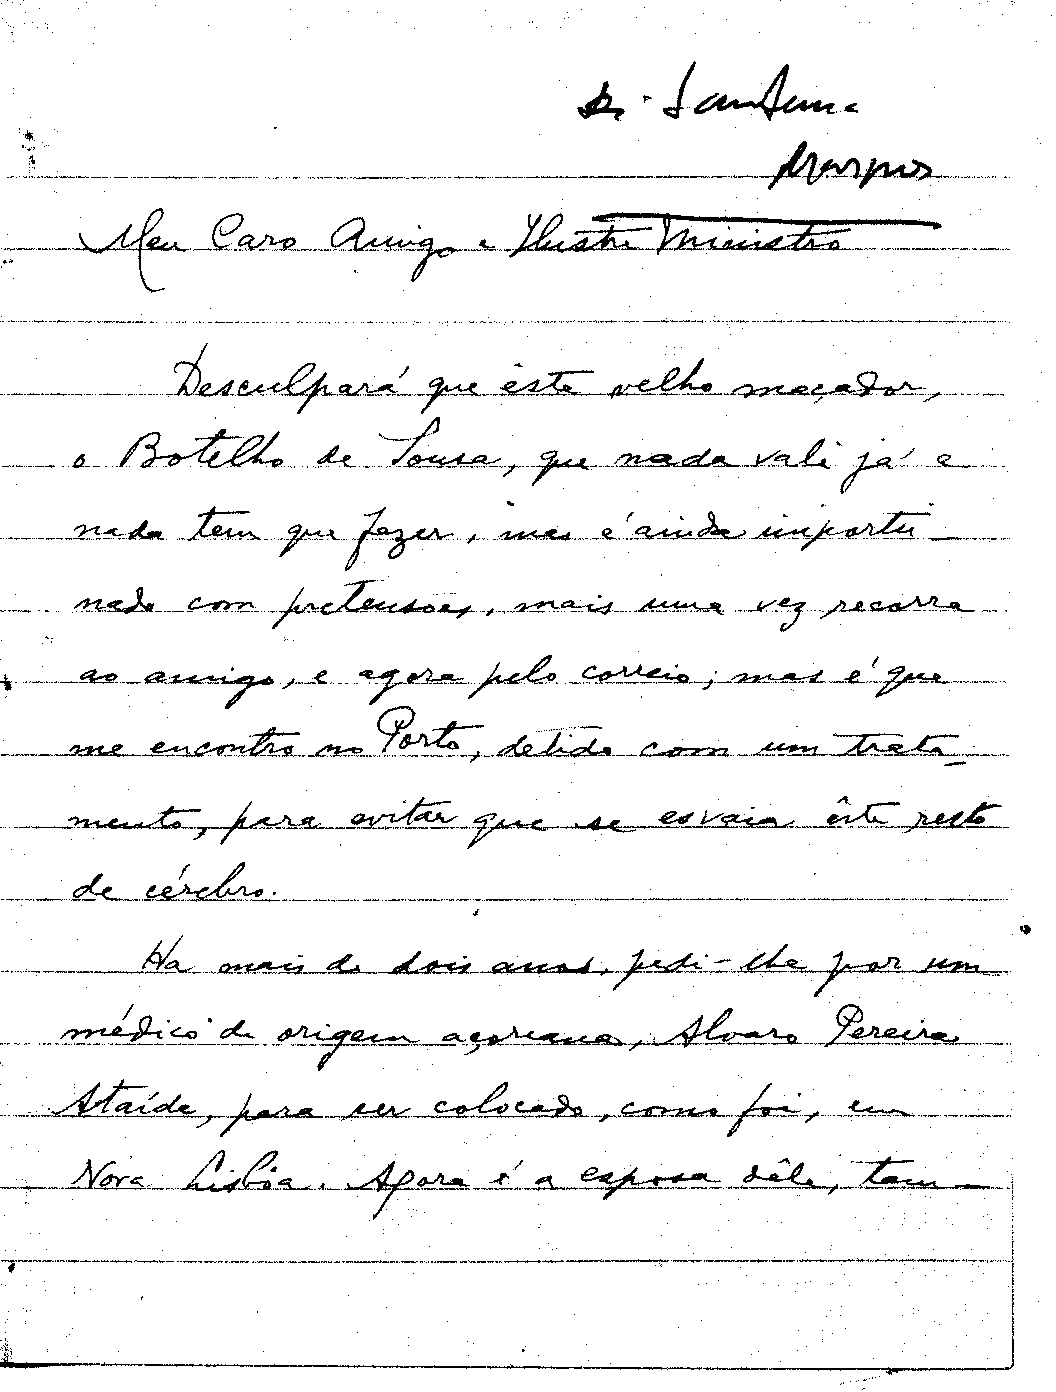 Dr. Santana
Marques
Meu Caro Amigo e Ilustre Ministro
Desculpará que êste velho maçador,
o Botelho de Sousa, que nada vale já e
nada tem que fazer, mas é ainda importu-
nado com pretensões, mais uma vez recorra
ao amigo, e agora pelo correio; mas é que
me encontro no Porto, detido com um trata-
mento, para evitar que se esvaia êste resto
de cérebro.
Ha mais de dois anos, pedi-lhe por um
médico de origem açoreana, Alvaro Pereira
Ataíde, para ser colocado, como foi, em
Nova Lisbôa. Agora é a esposa dêle, tam-